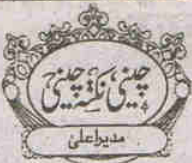 چینی نکتہ چینی
مدیر اعلیٰ